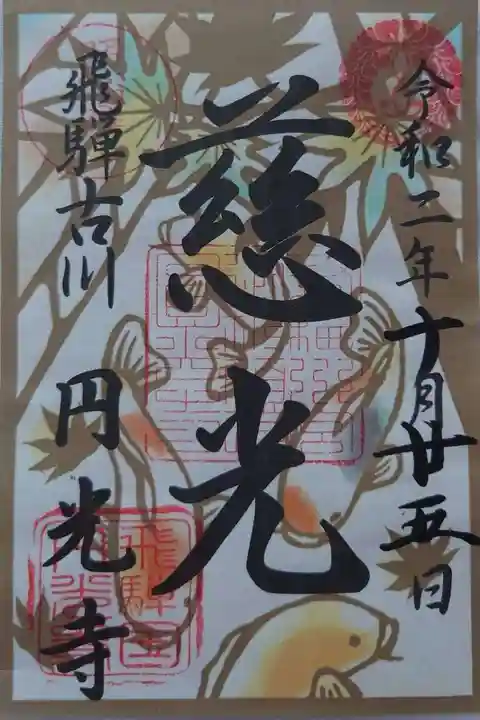 令和二年十月廿五日
慈光
飛騨古川 円光寺